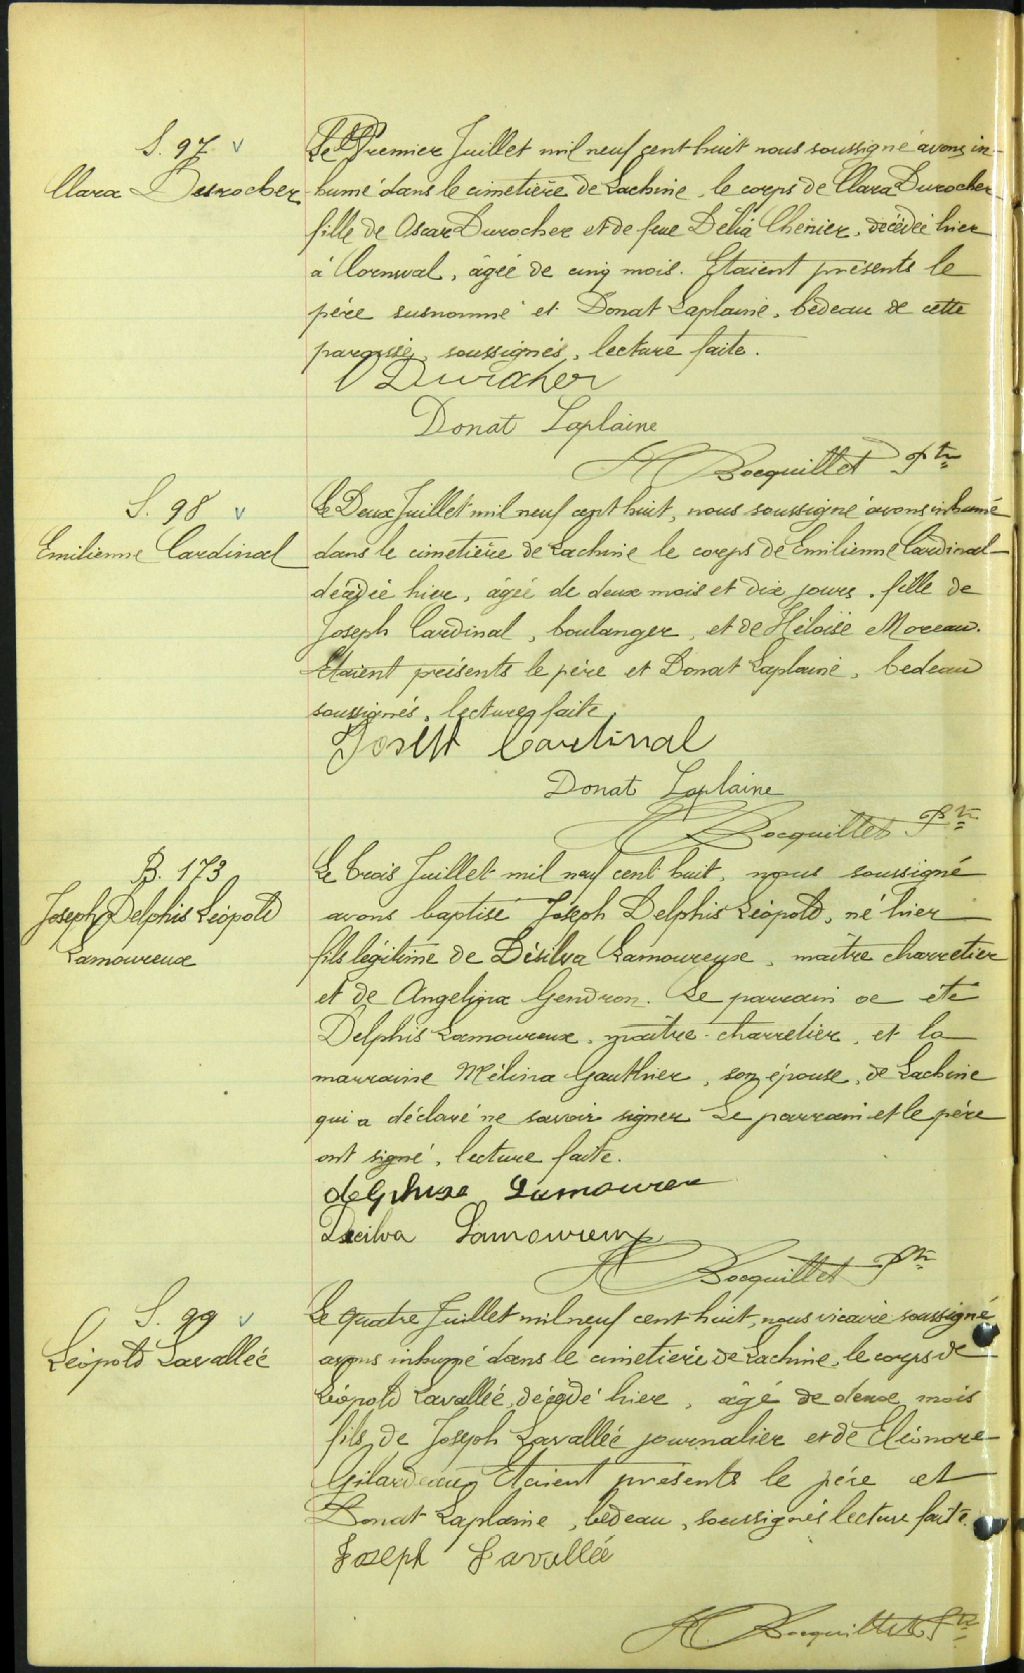 S. 97
Clara Desrocher
Le Premier Juillet mil neuf cent huit nous soussigné avons in-
humé dans le cimetière de Lachine, le corps de Clara Durocher
fille de Oscar Durocher et de feue Délia Chénier, décédée hier
à Cornwal, âgée de cinq mois. Etaient présents le
père susnommé et Donat Laplaine, bedeau de cette
paroisse, soussignés, lecture faite.
O Durocher
Donat Laplaine
H Bocquillet Ptr
S. 98
Emilienne Cardinal
Le Deux Juillet mil neuf cent huit, nous soussigné avons inhumé
dans le cimetière de Lachine le corps de Emilienne Cardinal
décédée hier, âgée de deux mois et dix jours, fille de
Joseph Cardinal, boulanger, et de Héloïse Moreau.
Etaient présents le père et Donat Laplaine, bedeau
soussignés, lecture faite.
Joseph Cardinal
Donat Laplaine
H Bocquillet Ptr
B. 173
Joseph Delphis Léopold
Lamoureux
Le trois Juillet mil neuf cent huit, nous soussigné
avons baptisé Joseph Delphis Léopold, né hier
fils légitime de Désilva Lamoureux, maître charretier
et de Angelina Gendron. Le parrain a été
Delphis Lamoureux, maître-charretier, et la
marraine Mélina Gauthier, son épouse, de Lachine
qui a déclaré ne savoir signer Le parrain et le père
ont signé, lecture faite.
Lamoureux
Decilva Lamoureux
H Bocquillet Ptr
S. 99
Léopold Lavallée
Le quatre Juillet mil neuf cent huit, nous vicaire soussigné
avons inhumé dans le cimetière de Lachine, le corps de
Léopold Lavallée, décédé hier, âgé de deux mois
fils de Joseph Lavallée journalier et de Eléonore
Gilardeau, Etaient présents le père et
Donat Laplaine, bedeau, soussignés lecture faite.
Joseph Lavallée
H. Bocquillet Ptr